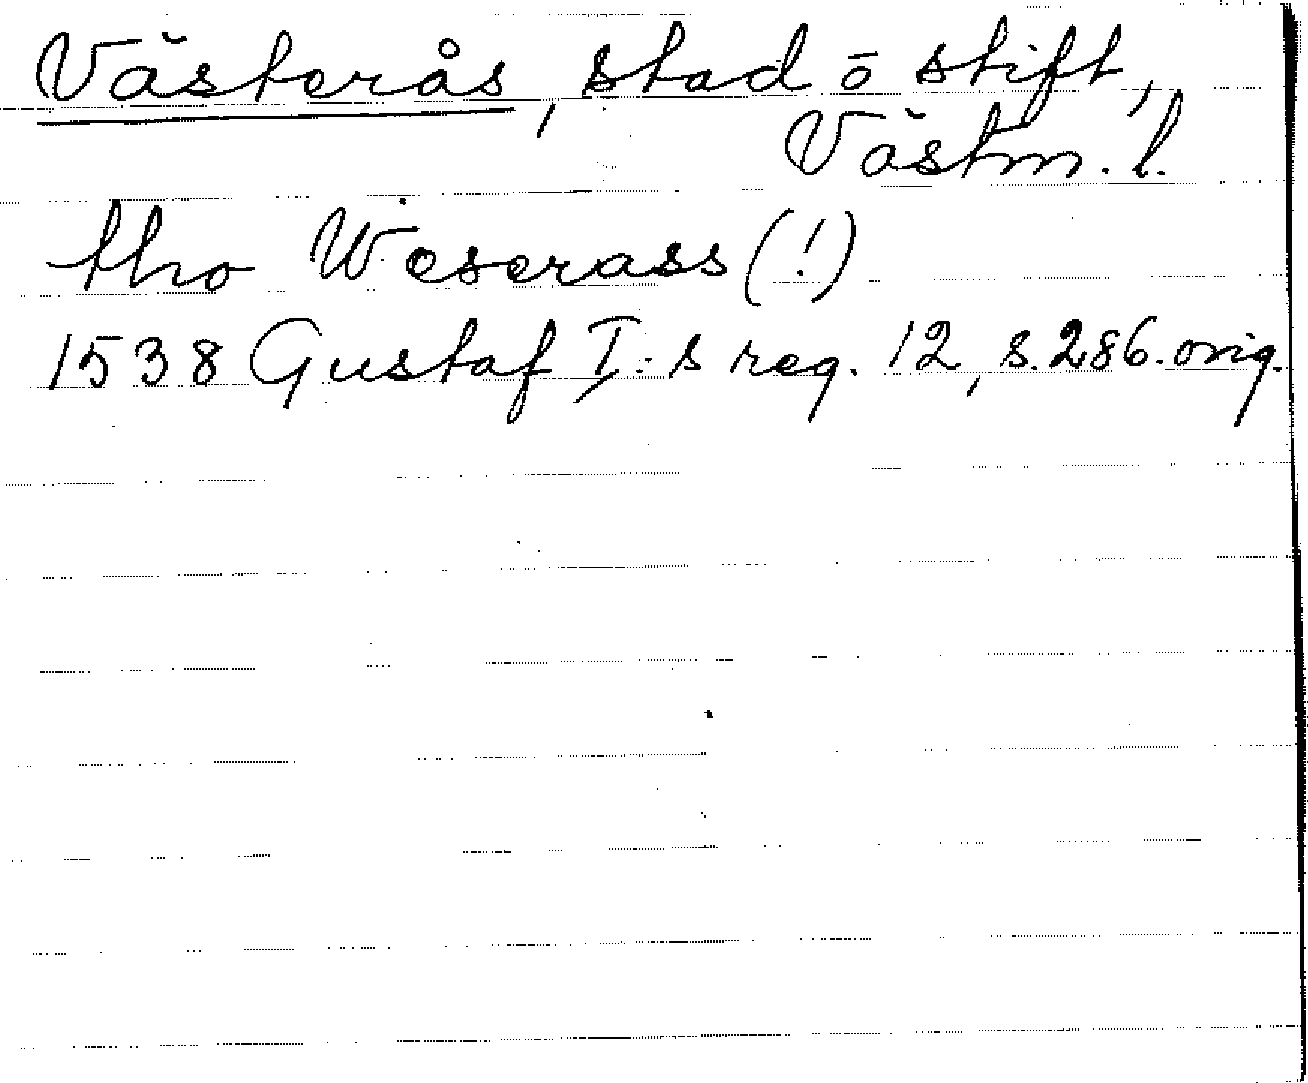 Västerås, stad o stift,
Västm. l.
tho Weserass (!)
1538 Gustaf I:s reg. 12, s. 286. orig.